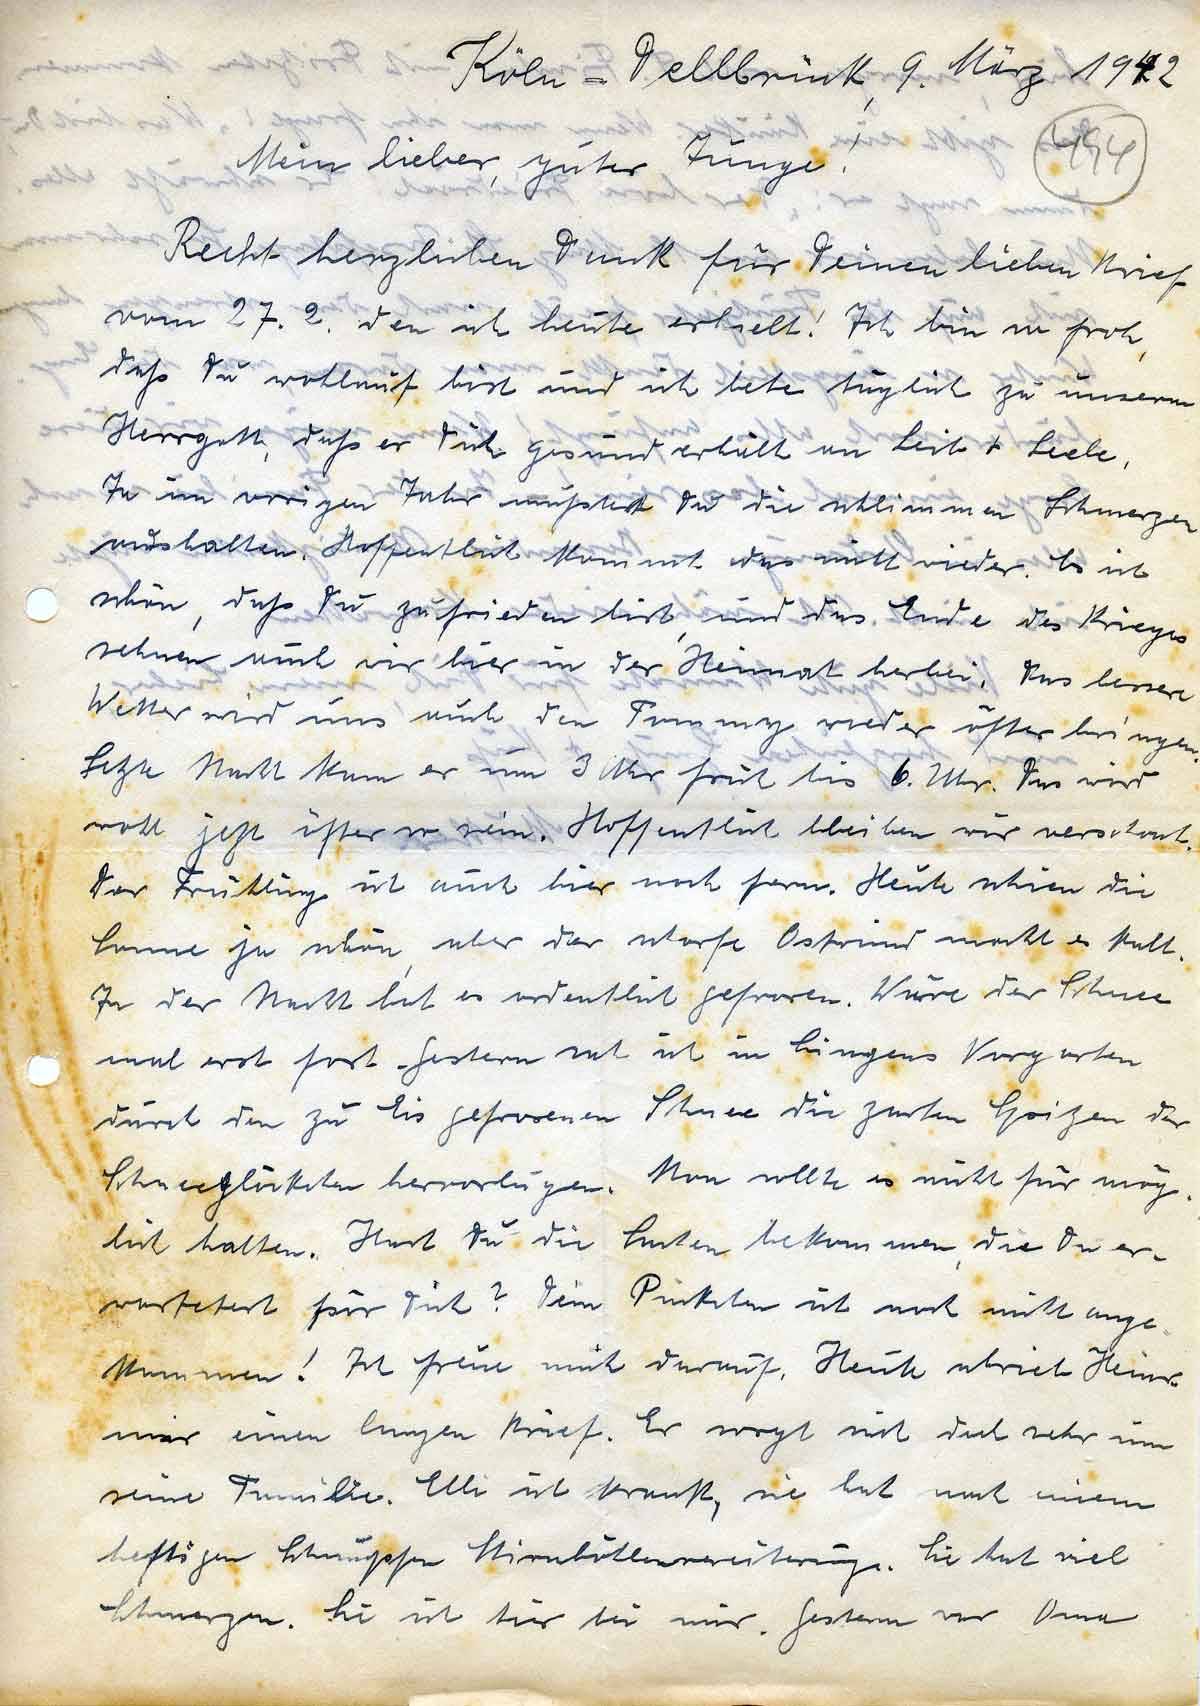 Köln-Dellbrück, 9. März 1942
494
Mein lieber, guter Junge!
Recht herzlichen Dank für Deinen lieben Brief
vom 27. 2. den ich heute erhielt! Ich bin so froh,
daß Du wohlauf bist und ich bete täglich zu unserem
Herrgott, daß er Dich gesund erhält an Leib + Seele.
Ja im vorigen Jahr mußtest Du die schlimmen Schmerzen
aushalten. Hoffentlich kommt das nicht wieder. Es ist
schön, daß Du zufrieden bist, und das Ende des Krieges
sehnen auch wir hier in der Heimat herbei. Das bessere
Wetter wird uns auch den Tommy wieder öfter bringen.
Letzte Nacht kam er um 3 Uhr früh bis 6. Uhr. Das wird
wohl jetzt öfter so sein. Hoffentlich bleiben wir verschont.
Der Frühling ist auch hier noch fern. Heute schien die
Sonne ja schön, aber der scharfe Ostwind macht es kalt.
In der Nacht hat es ordentlich gefroren. Wäre der Schnee
mal erst fort. Gestern sah ich in Vorgarten
durch den zu Eis gefrorenen Schnee die zarten Spitzen der
Schneeglöckchen hervorlugen. Man sollte es nicht für mög-
lich halten. Hast Du die Sachen bekommen, die Du er-
wartetest für Dich? Dein Päckchen ist noch nicht ange-
kommen! Ich freue mich darauf. Heute schrieb Heinr.
mir einen langen Brief. Er sorgt sich doch sehr um
seine Familie. Elli ist krank, sie hat nach einem
heftigen Schnupfen Stirnhöllenvereiterung. Sie hat viel
Schmerzen. Sie ist hier bei mir. Gestern war Oma